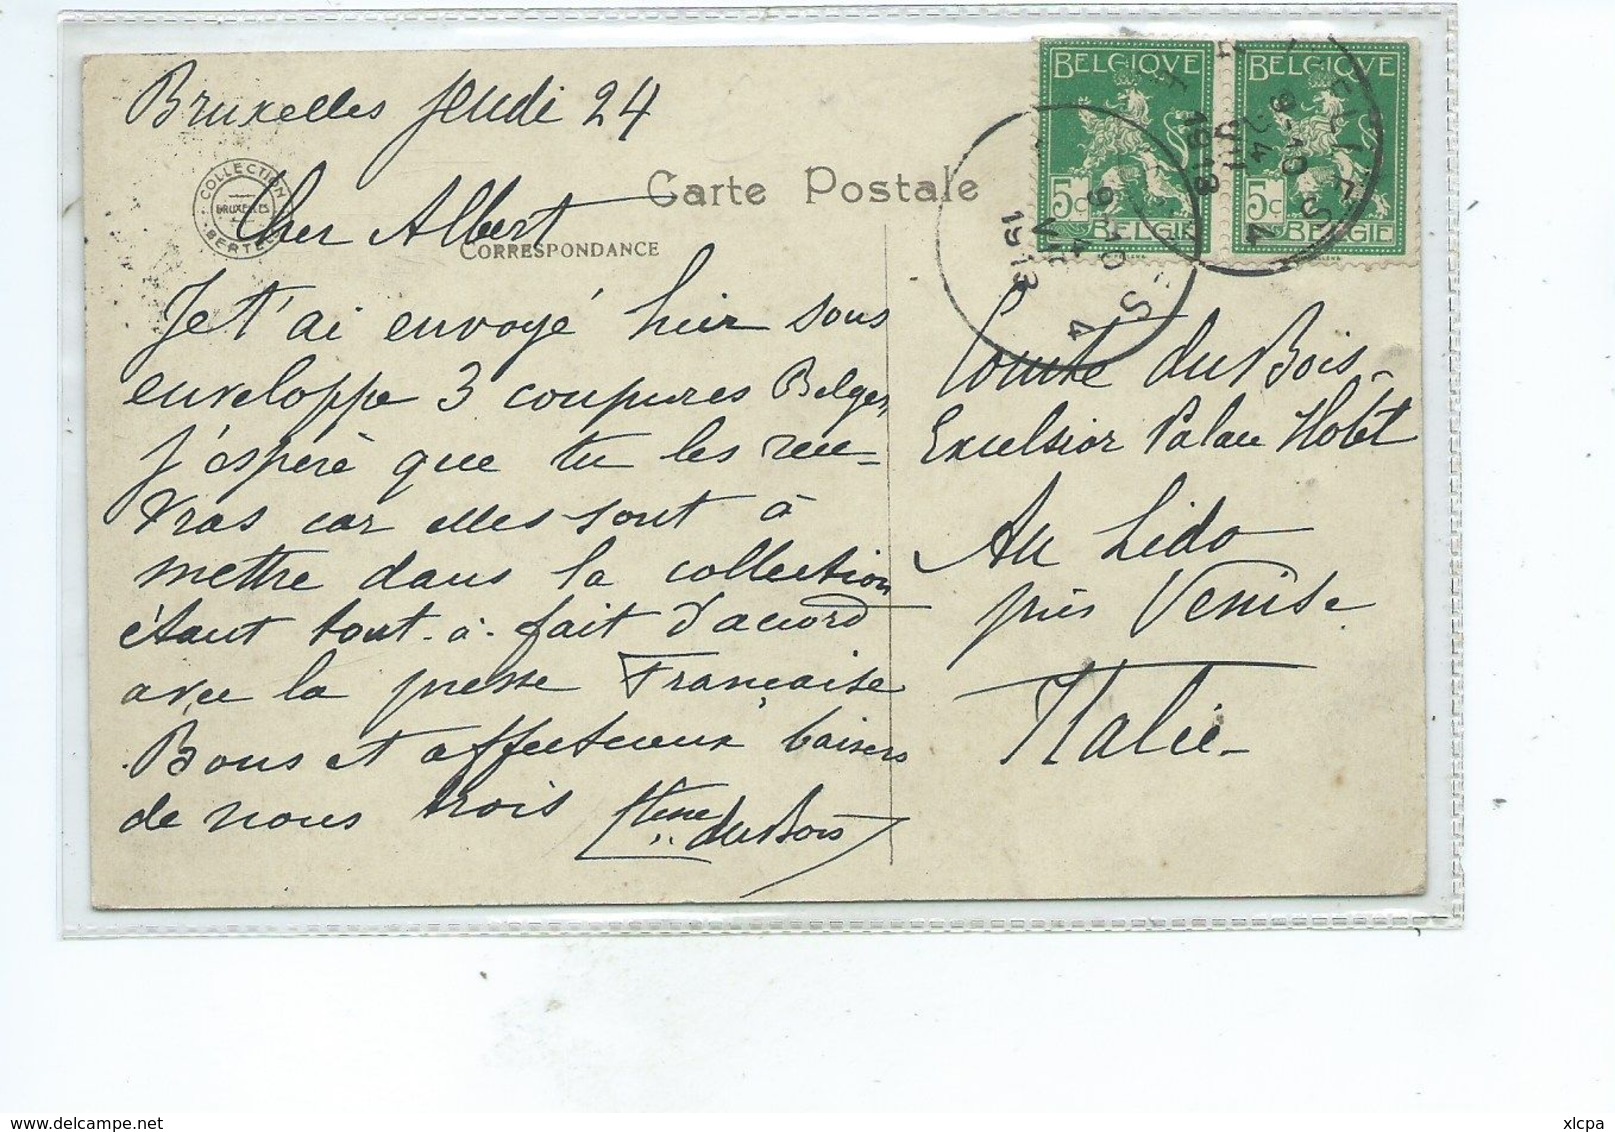 Bruxelles Jeudi 24
COLLECTION BRUXELLES
Cher Albert
Carte Postale
CORRESPONDANCE
Je t'ai envoyé hier sous
enveloppe 3 coupures Belges
J'espère que tu les rece=
vras car elles sont à
mettre dans la collection
étant tout-à-fait d'accord
avec la presse Française
Bons et affectueux baisers
de nous trois
du Bois
BELGIQUE
5c
BELGIE
BELGIQUE
5c
BELGIE
9-10
24
VII
1913
9-10
VII
1913
Comte du Bois
Excelsior Palace Hotel
Au Lido
près Venise
Italie
xlcpa